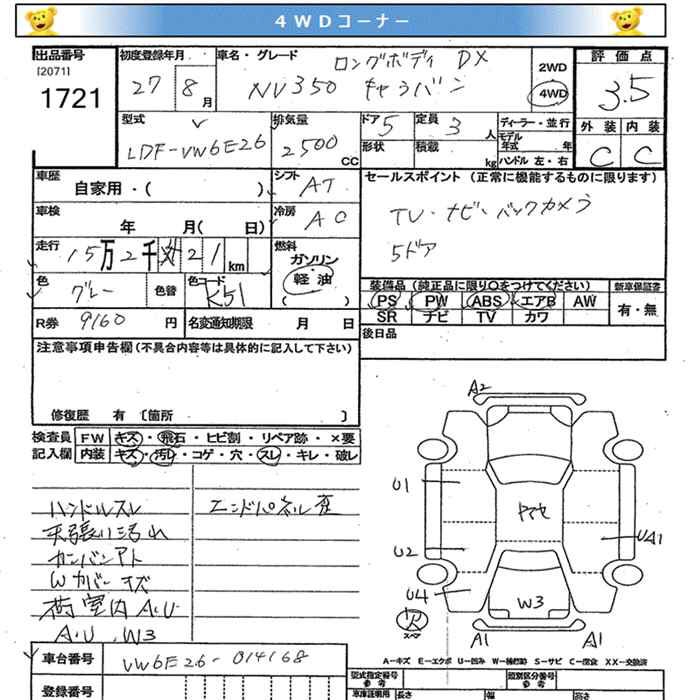 4WDコーナー
出品番号
[2071]
1721
初度登録年月
27 8月
車名・グレード
ロングボディ DX
NV350 キャラバン
2WD
4WD
評価点
3.5
外装 内装
C C
型式
LDF-VW6E26
排気量
2500 CC
ドア 5
定員 3 人
形状
積載 kg
ディーラー・並行
モデル年式 年
ハンドル 左・右
車歴
自家用・( )
シフト
AT
車検
年 月( 日)
冷房
AC
走行
15万2千 21 km
燃料
ガソリン
軽油
( )
色
グレー
色替
色コード
K51
セールスポイント (正常に機能するものに限ります)
TV・ナビ・バックカメラ
5ドア
装備品 (純正品に限り○をつけてください)
新車保証書
PS PW ABS エアB AW
SR ナビ TV カワ
有・無
R券 9160 円
名変通知期限 月 日
後日品
注意事項申告欄 (不具合内容等は具体的に記入して下さい)
修復歴 有 〔箇所 〕
検査員
記入欄
FW キズ・飛石・ヒビ割・リペア跡・×要
内装 キズ・汚レ・コゲ・穴・スレ・キレ・破レ
ハンドルスレ
天張り汚れ
カンバンアト
Wカバーキズ
荷室内A.U
A.U.W3
エンドパネル歪
A2
U1
U2
U4
UA1
W3
A1
A1
スペア
A-キズ E-エクボ U-凹み W-補修跡 S-サビ C-腐食 XX-交換済
車台番号
VW6E26-014168
登録番号
型式指定番号
参考
類別区分番号
参考
車庫証明用
長さ 幅 高さ